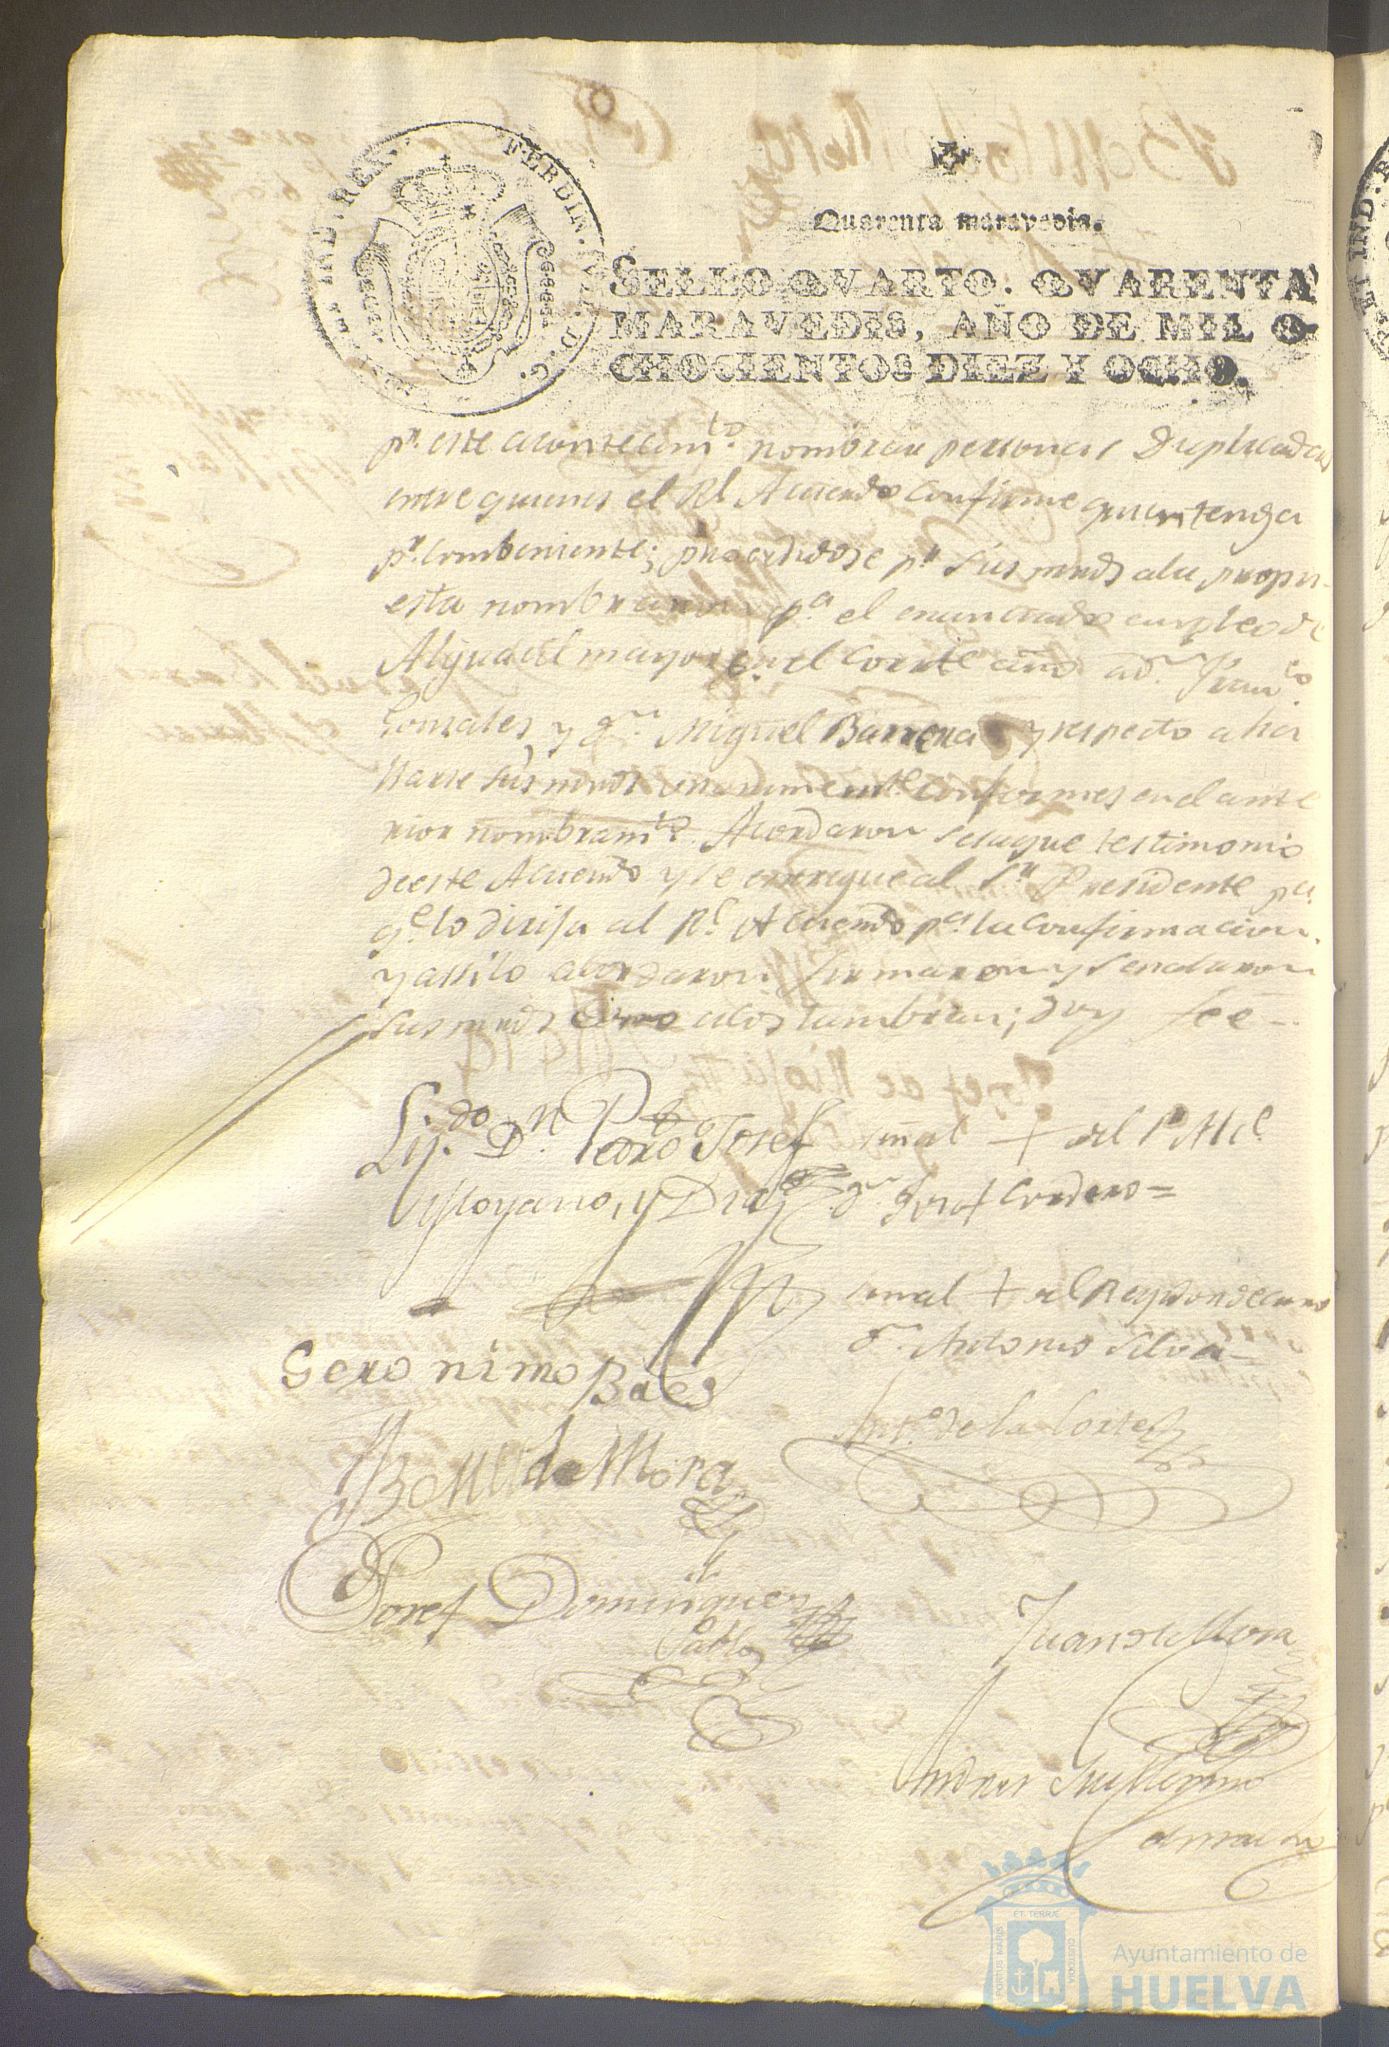 FERDIN. VII. D. G. HISP. ET IND. REX.
Quarenta maravedis.
SELLO QVARTO. QVARENTA
MARAVEDIS, AÑO DE MIL O-
CHOCIENTOS DIEZ Y OCHO.
pr. este acontecimto. nombrar personas Duplicadas
entre quienes el Rl Acuerdo confirme quien tenga
pr. combeniente; procediendose pr. sus mrds ala propu-
esta nombraron pa. el enunciado empleo de
Alguacil mayor en el corrte año a dn. Franco
Gonzales y dn. Miguel Barrera y respecto a ha
llarse sus mrds unanimemte. conformes en el ante
rior nombramto. Acordaron se saque testimonio
de este Acuerdo y se entregue al Sr. Presidente pa.
qe. lo dirija al Rl. Acuerdo pa. la confirmacion.
y assi lo acordaron firmaron y señalaron
sus mrds como acostumbran; doy fee
Lizdo. Dn. Pedro Josef
Moyano, y Diaz
señal + del P. Alce.
dn. Josef Cordero =
señal + del Regidor decano
dn. Antonio Silva
Geronimo Baes
Anto. de la Corte
Benito de Mora
Josef Dominguez
Pablo
Juan de Mora
Andres Guillermo
Camacho
PORTUS MARIS ET TERRÆ CUSTODIA
Ayuntamiento de
HUELVA